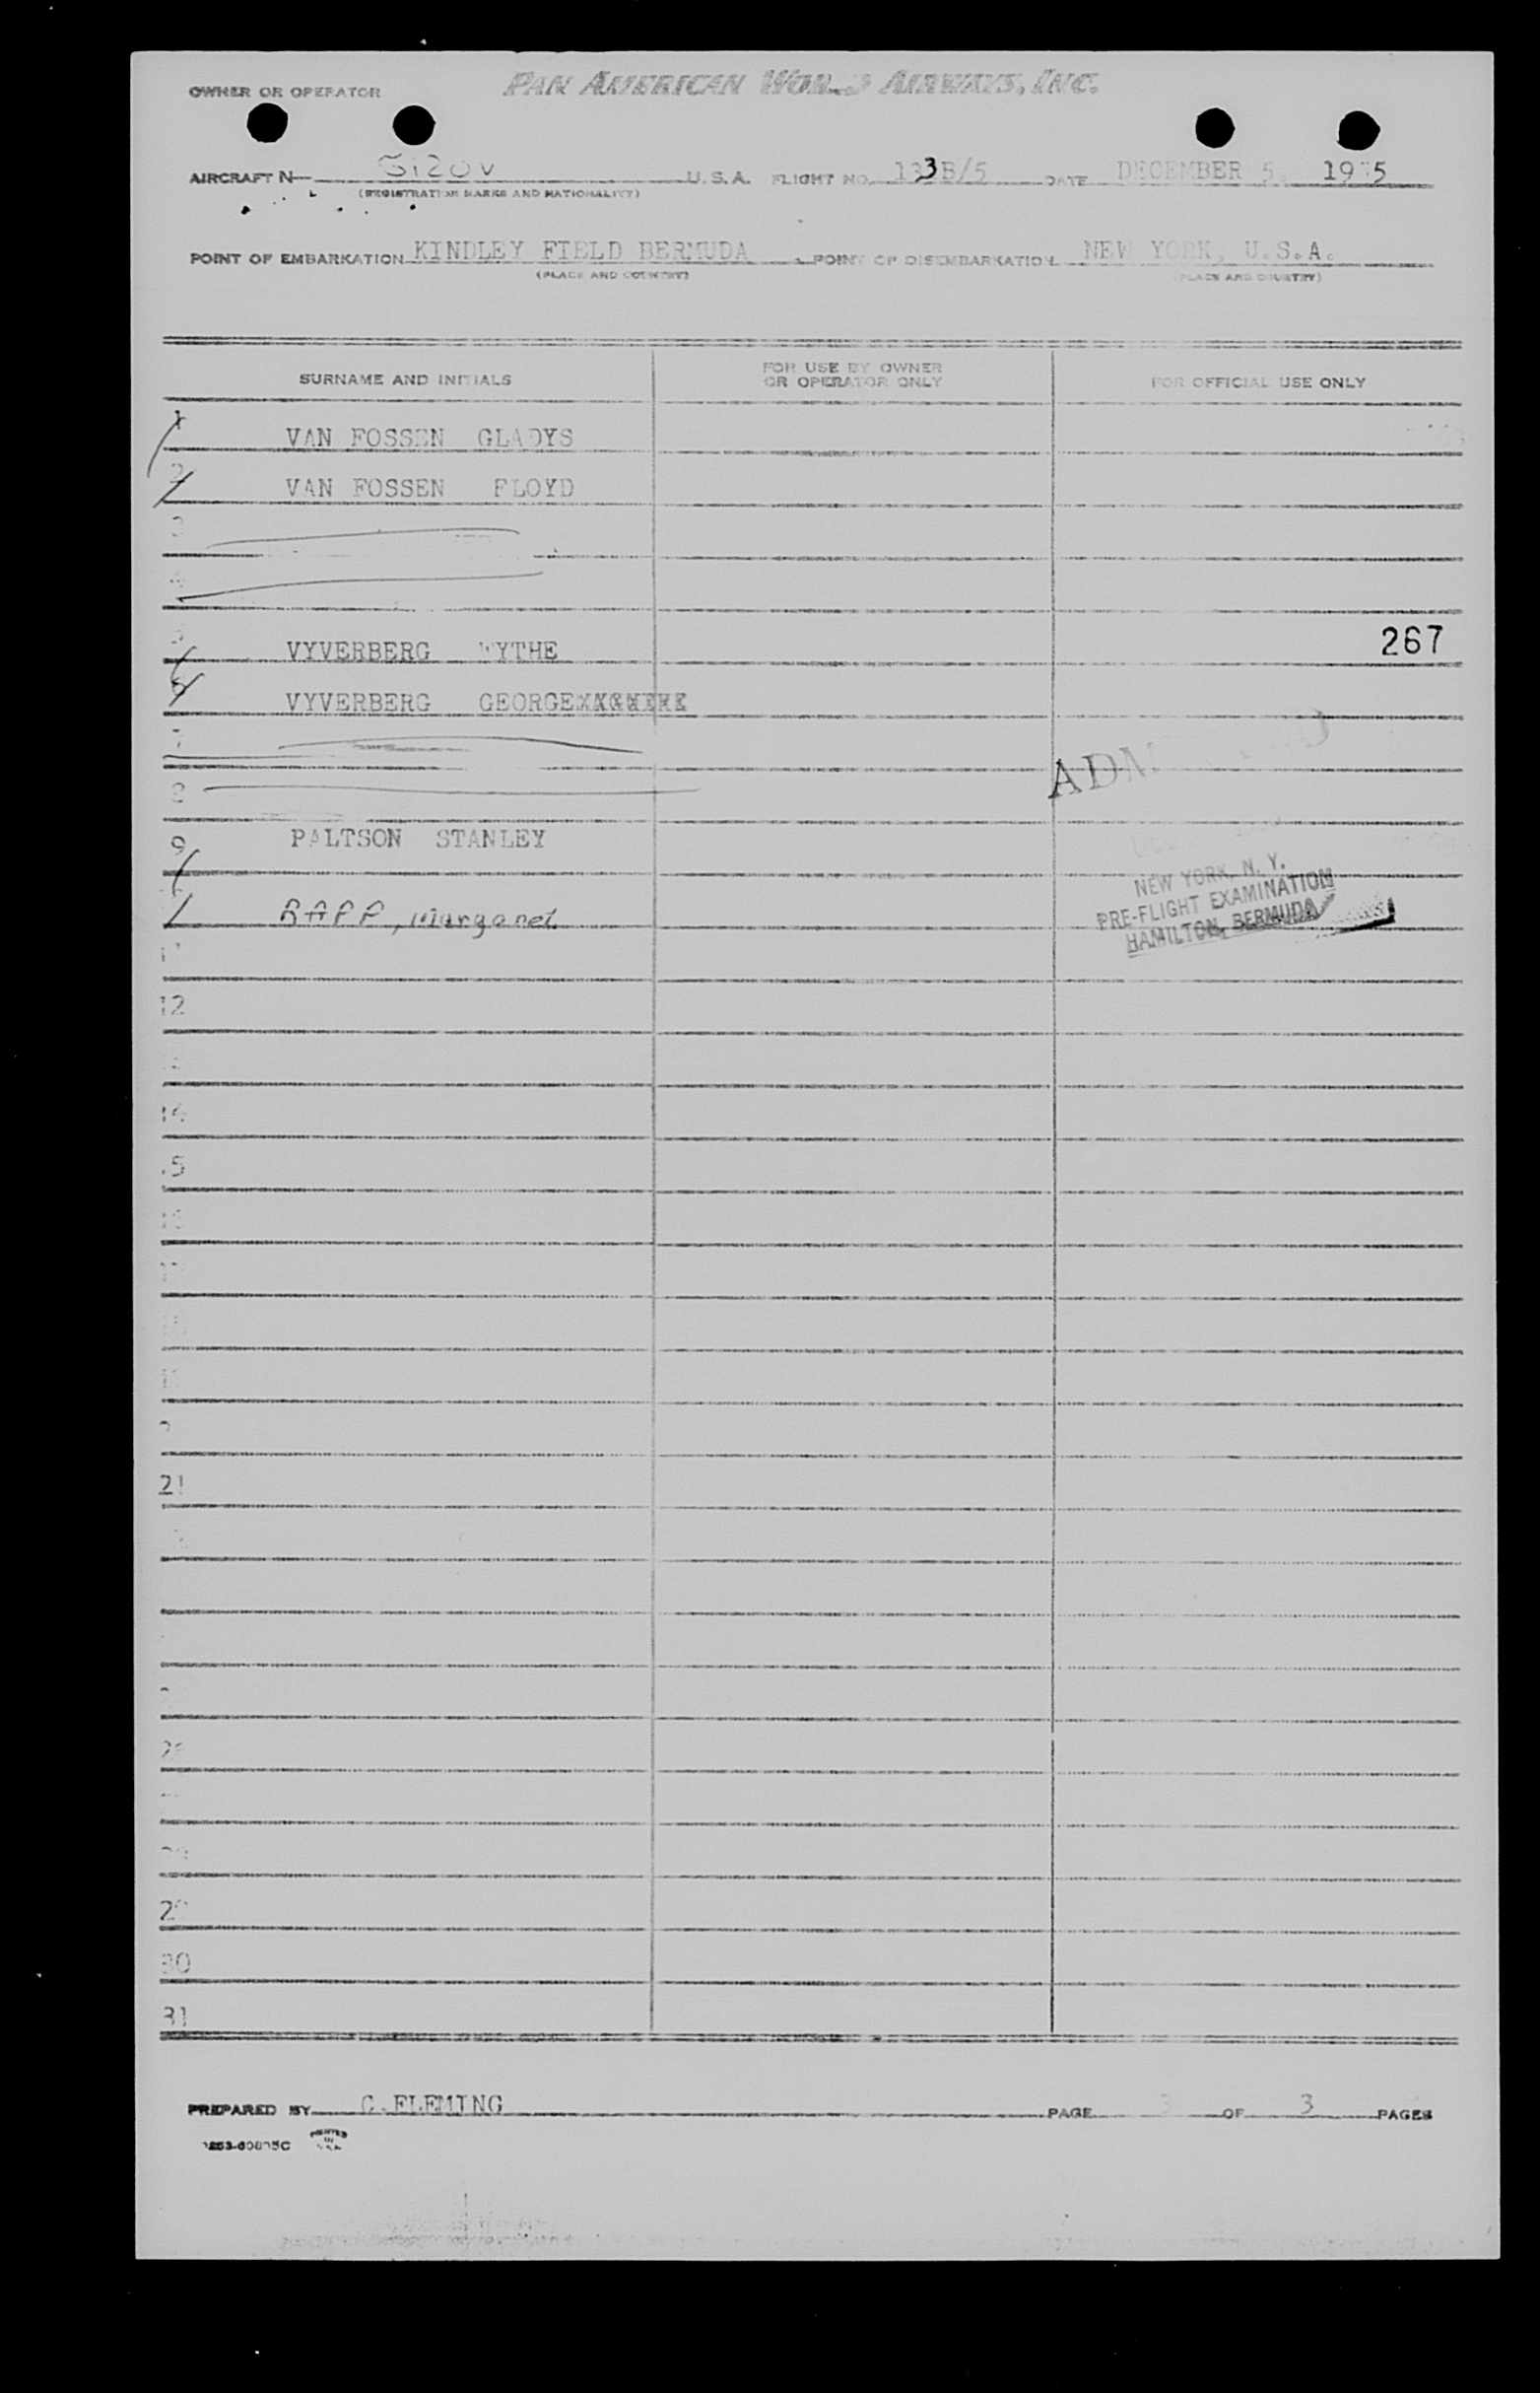 OWNER OR OPERATOR PAN AMERICAN WORLD AIRWAYS, INC.
AIRCRAFT N— U.S.A. FLIGHT NO. 133B/5 DATE DECEMBER 5, 1955
(REGISTRATION MARKS AND NATIONALITY)
POINT OF EMBARKATION KINDLEY FIELD BERMUDA POINT OF DISEMBARKATION NEW YORK, U.S.A.
(PLACE AND COUNTRY) (PLACE AND COUNTRY)
SURNAME AND INITIALS FOR USE BY OWNER OR OPERATOR ONLY FOR OFFICIAL USE ONLY
1 VAN FOSSEN GLADYS
2 VAN FOSSEN FLOYD
3
4
5 VYVERBERG WYTHE 267
6 VYVERBERG GEORGE
7
8
9 PALTSON STANLEY
RAPP, Margaret
NEW YORK, N. Y.
PRE-FLIGHT EXAMINATION
HAMILTON, BERMUDA
12
14
15
21
29
30
31
PREPARED BY C.FLEMING PAGE 3 OF 3 PAGES
PRINTED IN U.S.A.